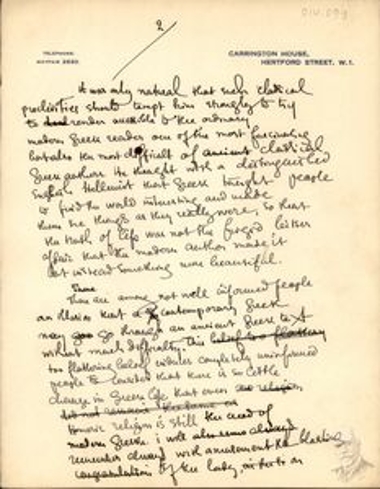 DIV. 099
2
TELEPHONE:
MAYFAIR 3830.
CARRINGTON HOUSE,
HERTFORD STREET. W.1.
It was only natural that such classical
proclivities should tempt him strongly to try
to render accessible to the ordinary
modern Greek reader one of the most fascinating
but also the most difficult of ancient classical
Greek authors. He thought with a distinguished
English Hellenist that Greek taught people
to find the world interesting and made
them see things as they really were, so that
the truth of life was not the forged bitter
affair that the modern author made it
but instead something more beautiful.
There are among not well informed people
an illusion that a contemporary Greek
may go through an ancient Greek text
without much difficulty. This belief is a flattery
too flattering belief induces completely uninformed
people to that there is so little
change in Greek life that even religion
Homeric religion is still the creed of
modern Greece. I will always
remember always with amusement the
of the lady